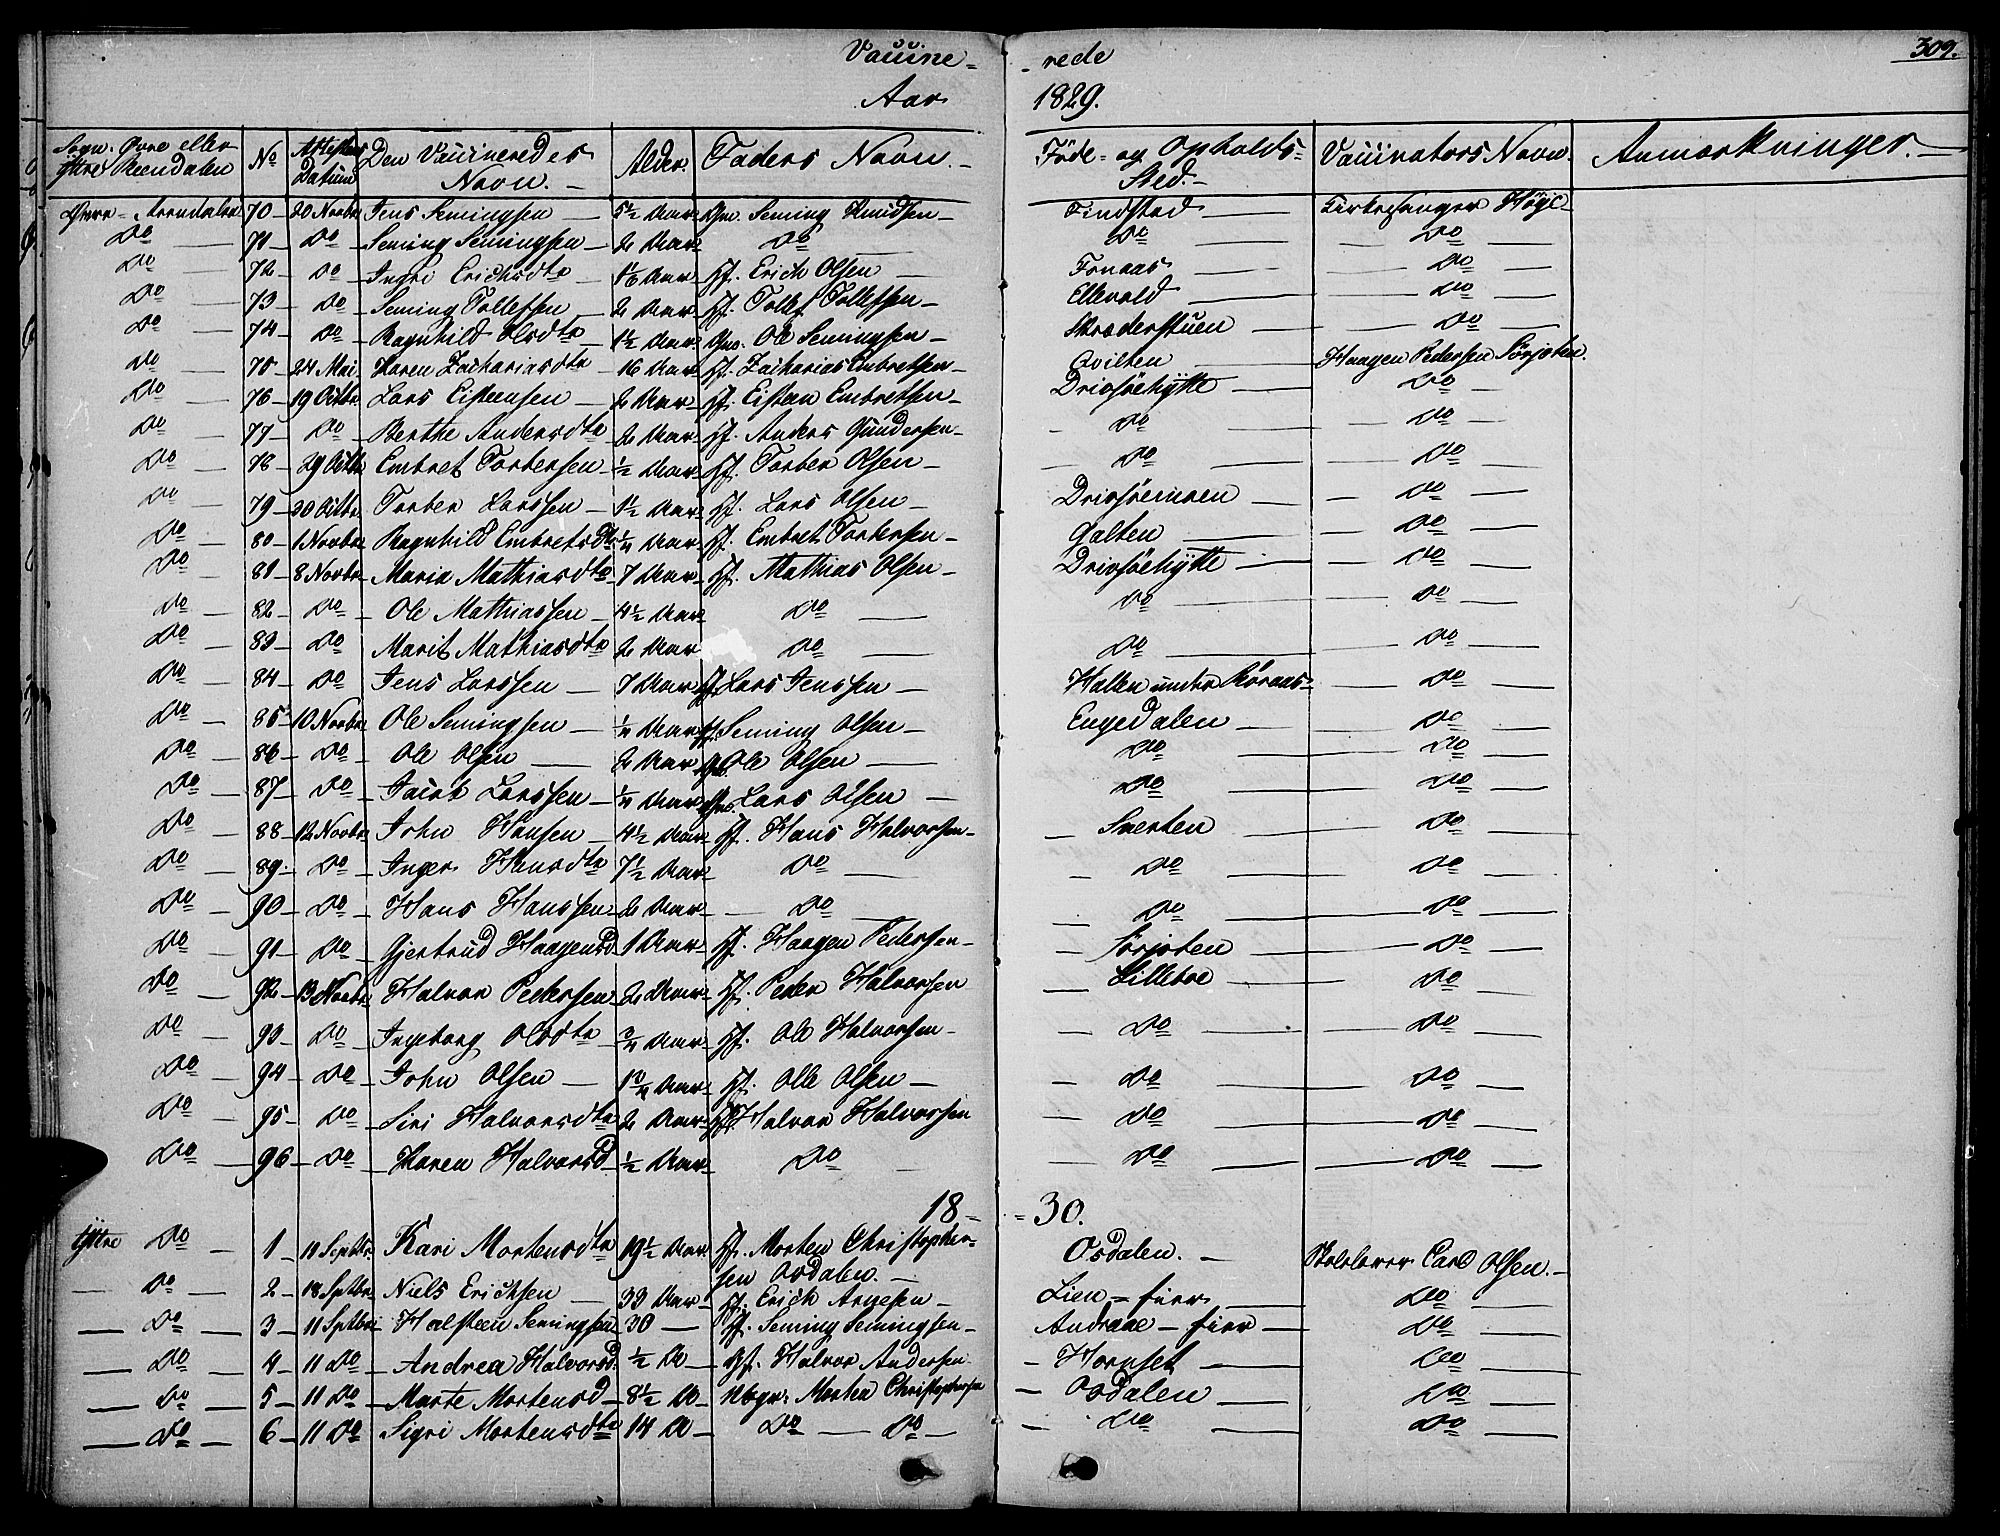 Vaccine- -rede 309.
Aar 1829.
Sogn. Øvre eller Ytre Reendalen | No | Attestens Datum | Den Vaccineredes Navn. | Alder. | Faders Navn. | Föde- og Opholds-Sted. | Vaccinators Navn. | Anmærkninger.
Øvre- 70 20 Novbr Jens Semingsen 5½ Aar Gm. Seming Knudsen Findstad Kirkesanger Høye
Do 71 Do Seming Semingsen 2 Aar Do Do Do
Do 72 Do Ingri Erichsdtr Aar Hf. Erich Olsen Fonaas Do
Do 73 Do Seming Tollefsen 2 Aar Hf. Tollef Tollefsen Ellevold Do
Do 74 Do Ragnhild Olsdtr 1½ Aar Gm. Ole Semingsen Skrædderstuen Do
Do 75 24 Mai Karen Zachariasdtr 16 Aar Hf. Zacharias Embretsen Qvilten Haagen Pedersen Sørjoten.
Do 76 19 Octbr Lars Eisteensen 2 Aar Hf. Eisteen Embretsen Drivsöehytte Do
Do 77 Do Berthe Andersdtr 2 Aar Hf. Anders Gundersen Do Do
Do 78 29 Octb Embret Torbersen ½ Aar Hf. Torber Olsen Do Do
Do 79 30 Octbr Torber Larssen 1½ Aar Hf. Lars Olsen Drivsöemoen Do
Do 80 1 Novbr Ragnhild Embretsdtr ¼ Aar Hf. Embret Torbersen Galten Do
Do 81 8 Novbr Maria Mathiasdtr 7 Aar Hf. Mathias Olsen Drivsöehytte Do
Do 82 Do Ole Mathiassen 4½ Aar Do Do Do
Do 83 Do Marit Mathiasdtr 2 Aar Do Do Do
Do 84 Do Jens Larssen 7 Aar Hf. Lars Jenssen Hallen under Röraas Do
Do 85 10 Novbr Ole Semingsen ¼ Aar Hf. Seming Olsen Engedalen Do
Do 86 Do Ole Olsen 2 Aar Ole Olsen Do Do
Do 87 Do Jacob Larssen ¼ Aar Lars Olsen Do Do
Do 88 12 Novbr John Hansen 4½ Aar Hf. Hans Halvorsen Snerten Do
Do 89 Do Inger Hansdtr 7½ Aar Do Do Do
Do 90 Do Hans Hanssen 2 Aar Do Do Do
Do 91 Do Gjertrud Haagensd 1 Aar Hf. Haagen Pedersen Sørjoten Do
Do 92 13 Novbr Halvor Pedersen 2 Aar Hf. Peder Halvorsen Lilleboe Do
Do 93 Do Ingeborg Olsdtr ¾ Aar Hf. Ole Halvorsen Do Do
Do 94 Do John Olsen 1¾ Aar Hf. Ole Olsen Do Do
Do 95 Do Siri Halvorsdtr 2 Aar Hf. Halvor Halvorsen Do Do
Do 96 Do Karen Halvorsd ½ Aar Do Do Do
18- -30.
Yttre Do 1 11 Septbr Kari Mortensdtr 19½ Aar Hf. Morten Christopher- Osdalen. Skolelærer Carl Olsen.
sen Osdalen.
Do 2 18 Septbr Niels Erichsen 33 Aar Hf. Erich Arnesen Lien Do
Do 3 11 Sptbr Halsteen Semingsen 30 Hf. Seming Semingsen Andraae Do
Do 4 11 Do Andrea Halvorsd ½ Do Gf. Halvor Andersen Hornset Do
Do 5 11 Do Marte Mortensd 8½ Do Morten Christophersen Osdalen Do
Do 6 11 Do Sigri Mortensdtr 14 Do Do Do Do Do